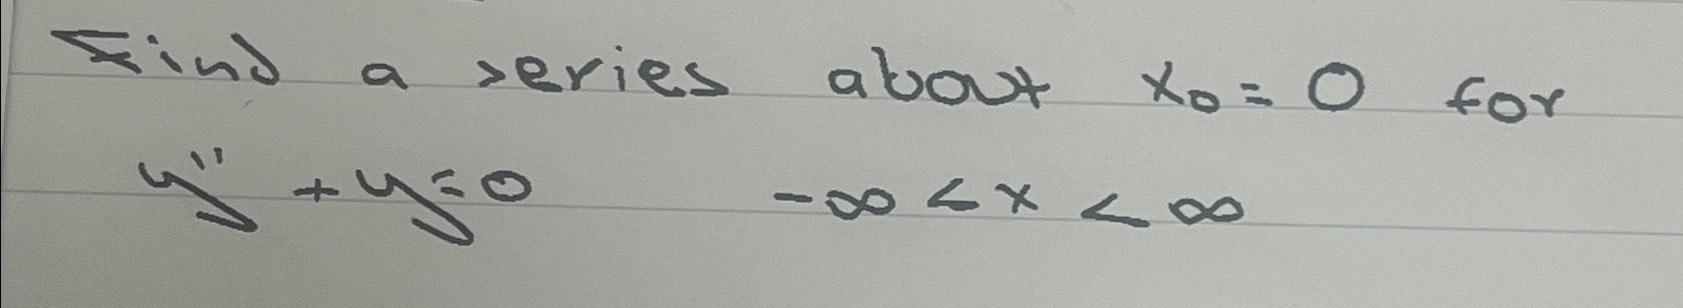 Find a series about x₀ = 0 for
y'' + y = 0 -∞ < x < ∞